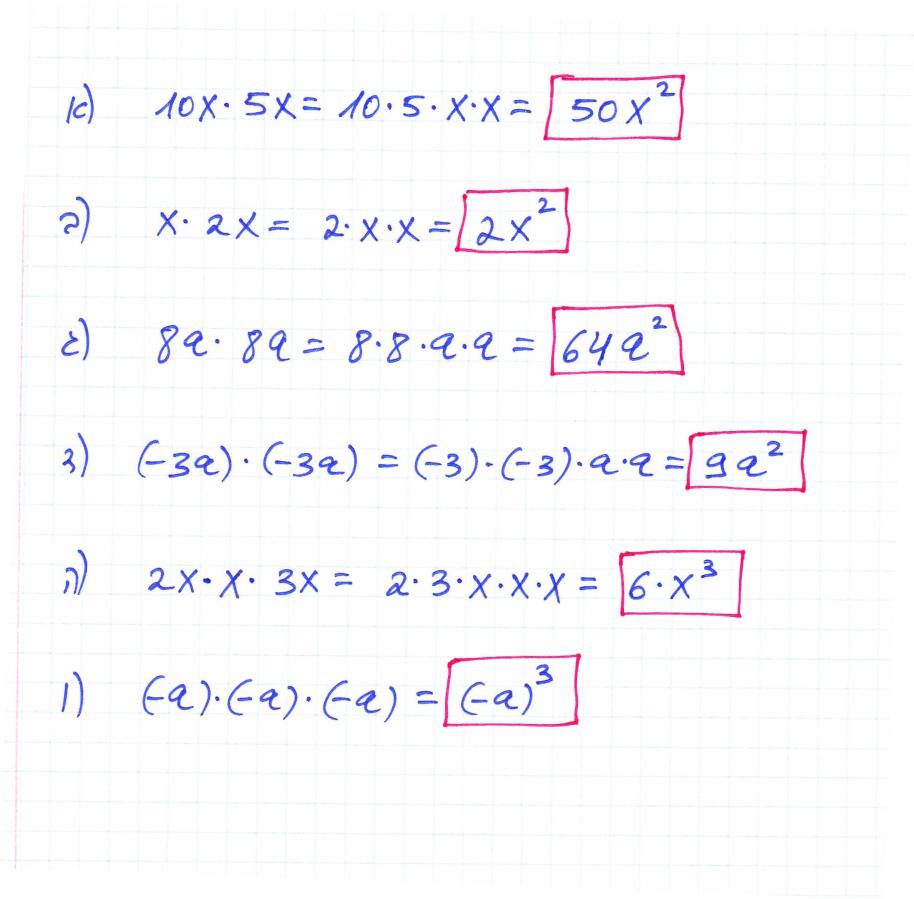 א) 10x · 5x = 10 · 5 · x · x = 50x²
ב) x · 2x = 2 · x · x = 2x²
ג) 8a · 8a = 8 · 8 · a · a = 64a²
ד) (-3a) · (-3a) = (-3) · (-3) · a · a = 9a²
ה) 2x · x · 3x = 2 · 3 · x · x · x = 6 · x³
ו) (-a) · (-a) · (-a) = (-a)³